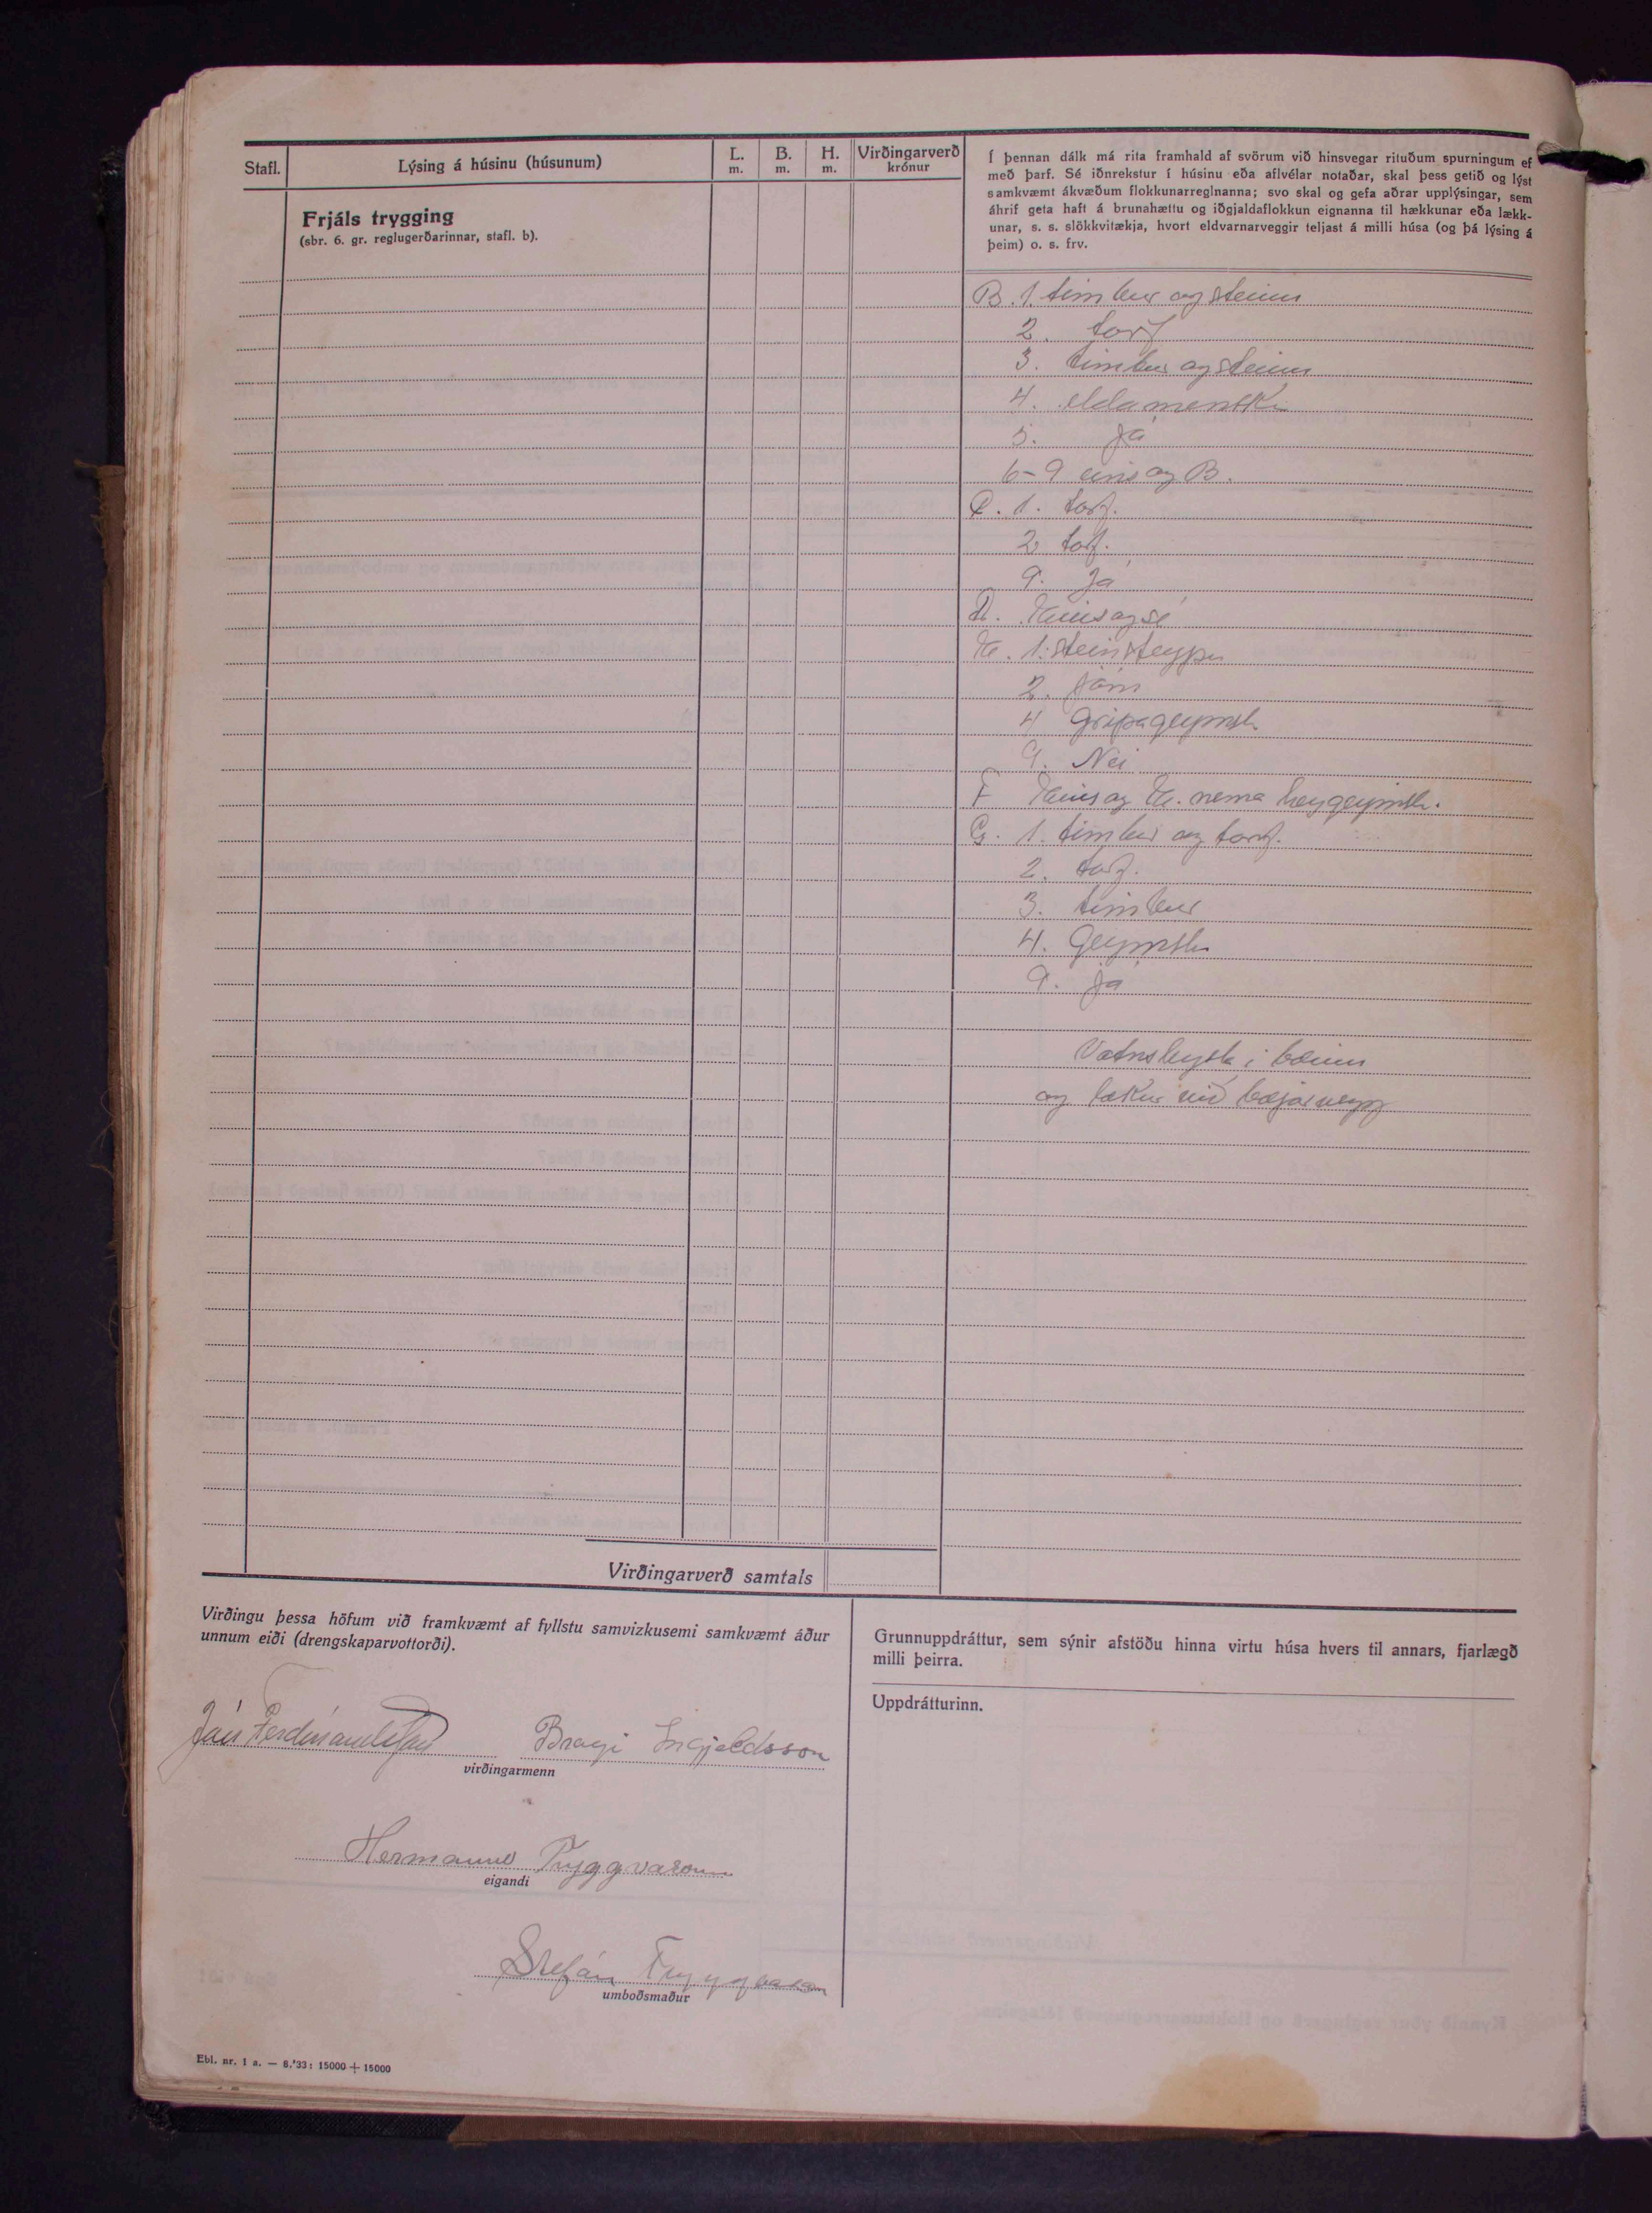 Stafl.
Lýsing á húsinu (húsunum)
L.
m.
B.
m.
H.
m.
Virðingarverð
krónur
Frjáls trygging
(sbr. 6. gr. reglugerðarinnar, stafl. b).
Í þennan dálk má rita framhald af svörum við hinsvegar rituðum spurningum ef
með þarf. Sé iðnrekstur í húsinu eða aflvélar notaðar, skal þess getið og lýst
samkvæmt ákvæðum flokkunarreglnanna; svo skal og gefa aðrar upplýsingar, sem
áhrif geta haft á brunahættu og iðgjaldaflokkun eignanna til hækkunar eða lækk-
unar, s. s. slökkvitækja, hvort eldvarnarveggir teljast á milli húsa (og þá lýsing á
þeim) o. s. frv.
B. 1. timbur og steinn
2. torf
3. timbur og steinn
4. eldamenska
5. Já
6-9 eins og B.
C. 1. torf.
2 torf.
9. Já
D. Eins og
E. 1. steinsteypa
2. járn
4 Gripageymsla
9. Nei
F Eins og E. nema heygeymsla.
G. 1. timbur og torf.
2. torf.
3. timbur
4. Geymsla
9. já
Vatnsleysla i bænum
og lækur við bæjarvegg
Virðingarverð samtals
Virðingu þessa höfum við framkvæmt af fyllstu samvizkusemi samkvæmt áður
unnum eiði (drengskaparvottorði).
Jón Ferdinandsson Bragi Ingjaldsson
virðingarmenn
Hermann Tryggvason
eigandi
Stefán Tryggvason
umboðsmaður
Grunnuppdráttur, sem sýnir afstöðu hinna virtu húsa hvers til annars, fjarlægð
milli þeirra.
Uppdrátturinn.
Ebl. nr. 1 a. — 8.'33: 15000 + 15000